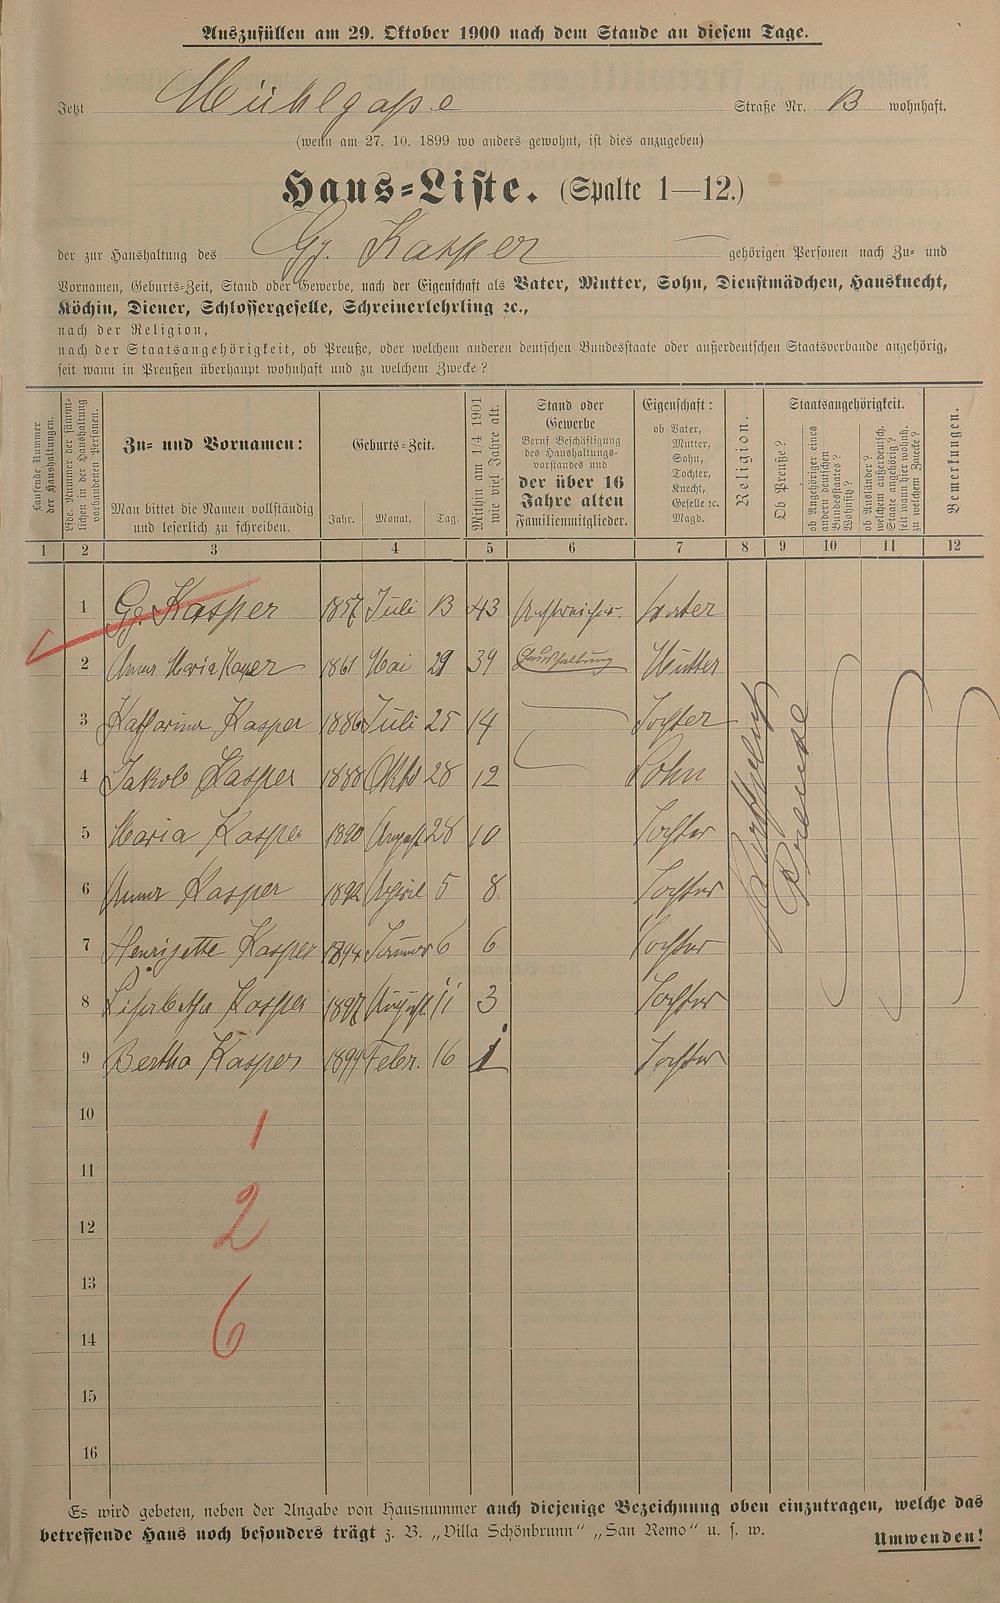 Auszufüllen am 29. Oktober 1900 nach dem Stande an diesem Tage.
Jetzt Mühlgaße Straße Nr. 13 wohnhaft.
(wenn am 27. 10. 1899 wo anders gewohnt, ist dies anzugeben)
Haus=Liste. (Spalte 1—12.)
der zur Haushaltung des Gg. Kasper gehörigen Personen nach Zu- und
Vornamen, Geburts-Zeit, Stand oder Gewerbe, nach der Eigenschaft als Vater, Mutter, Sohn, Dienstmädchen, Hausknecht,
Köchin, Diener, Schlossergeselle, Schreinerlehrling ꝛc.,
nach der Religion,
nach der Staatsangehörigkeit, ob Preuße, oder welchem anderen deutschen Bundesstaate oder außerdeutschen Staatsverbande angehörig,
seit wann in Preußen überhaupt wohnhaft und zu welchem Zwecke?
Laufende Nummer der Haushaltungen.
Lfde. Nummer der sämmtlichen in der Haushaltung vorhandenen Personen.
Zu- und Vornamen:
Man bittet die Namen vollständig
und leserlich zu schreiben.
Geburts-Zeit.
Jahr. Monat. Tag.
Mithin am 1/4 1901 wie viel Jahre alt.
Stand oder
Gewerbe
Beruf Beschäftigung
des Haushaltungs-
vorstandes und
der über 16
Jahre alten
Familienmitglieder.
Eigenschaft:
ob Vater,
Mutter,
Sohn,
Tochter,
Knecht,
Geselle ꝛc.
Magd.
Religion.
Staatsangehörigkeit.
Ob Preuße?
ob Angehöriger eines andern deutschen Bundesstaates? Wohnsitz?
ob Ausländer? welchem außerdeutsch. Staate angehörig? seit wann hier wohnh. zu welchem Zwecke?
Bemerkungen.
1 2 3 4 5 6 7 8 9 10 11 12
1 Gg. Kasper 1857 Juli 13 43 Vater
2 Anna Maria Kasper 1861 Mai 29 39 Haushaltung Mutter
3 Katharina Kasper 1886 Juli 25 14 Tochter
4 Jakob Kasper 1888 Oktb 28 12 Sohn
5 Maria Kasper 1890 August 28 10 Tochter
6 Anna Kasper 1892 April 5 8 Tochter
7 Henrijette Kasper 1894 Januar 6 6 Tochter
8 Kasper 1897 August 11 3 Tochter
9 Bertha Kasper 1899 Febr. 16 1 Tochter
Katholisch
Preuße
10
1
11
12
2
13
14
6
15
16
Es wird gebeten, neben der Angabe von Hausnummer auch diejenige Bezeichnung oben einzutragen, welche das
betreffende Haus noch besonders trägt z. B. „Villa Schönbrunn“ „San Remo“ u. s. w.
Umwenden!